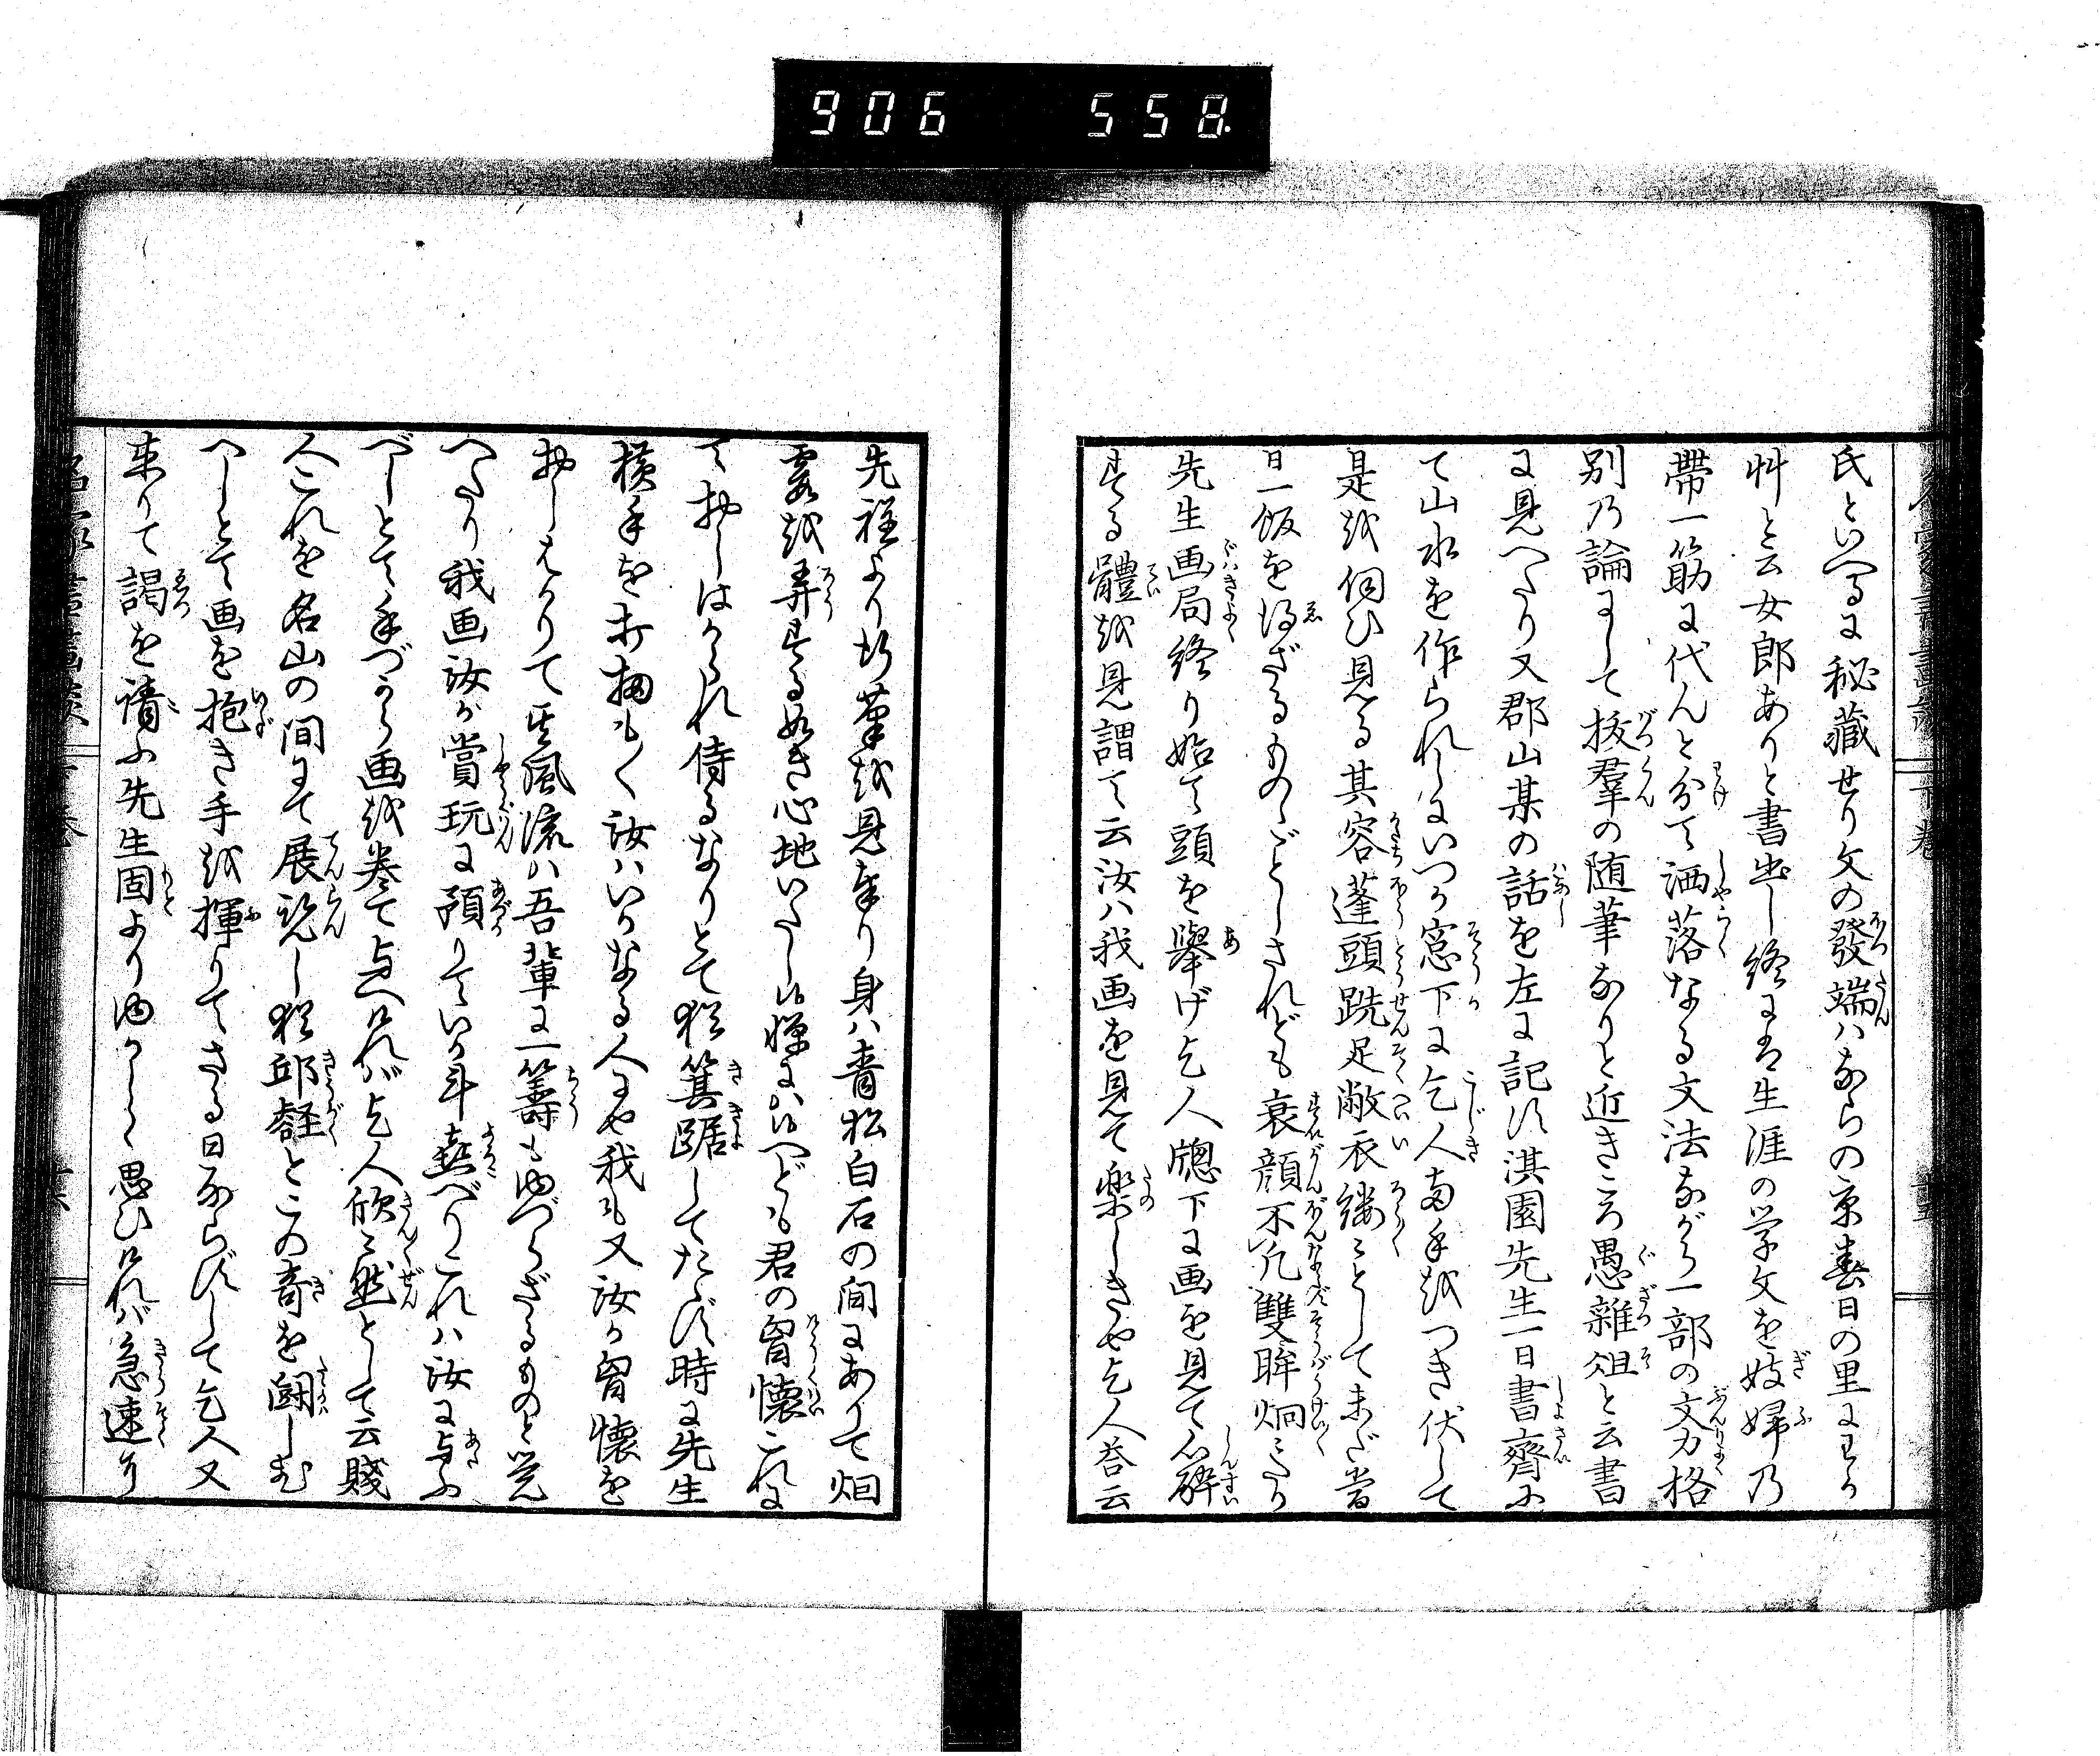 906 558
氏といへるに秘藏せり文の發端ハならの京春日の里にわか
艸と云女郎ありと書出し終には生涯の学文を妓婦乃
帶一筋に代んと分て洒落なる文法ながら一部の文力格
別乃論にして抜羣の随筆なりと近きころ愚雜俎と云書
に見へたり又郡山某の話を左に記す淇園先生一日書齊に
て山水を作られしにいつか窓下に乞人両手を つき伏して
是を伺ひ見る其容蓬頭跣足敝衣縷〻として未だ嘗
日一飯を得ざるものゝごとしされども衰顔不凡雙眸炯〻たり
先生画局終り始て頭を擧げ乞人牕下に画を見て心醉
する體を見謂て云汝ハ我画を見て楽しきや乞人荅云
先程より行筆を見奉り身ハ青松白石の間にありて烟
霞を弄する如き心地いたし候憚に候へども君の胷懐これに
て おしはかられ侍るなりとて猶箕踞してたゝず時に先生
横手を打扨も〱汝ハいかなる人にや我も又汝か胷懐を
おしえたりて其風流ハ吾輩に一籌もゆづらざるものと覚
へたり我画汝が賞玩に預りていか斗喜べりこれハ汝に与ふ
べしとて手づから画を巻て与へければ乞人欣〻然として云賤
人これを名山の間にて展玩し猶邱壑とこの奇を闘しむ
へしとて画を抱き手を揮りてさる日ならずして乞人又
来りて謁を請ふ先生固よりゆかしく思ひければ急速に